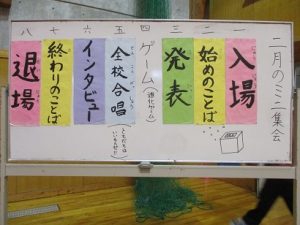 二月のミニ集会
一 入場
二 始めのことば
三 発表
四 ゲーム(進化ゲーム)
五 全校合唱
六 インタビュー
七 終わりのことば
八 退場